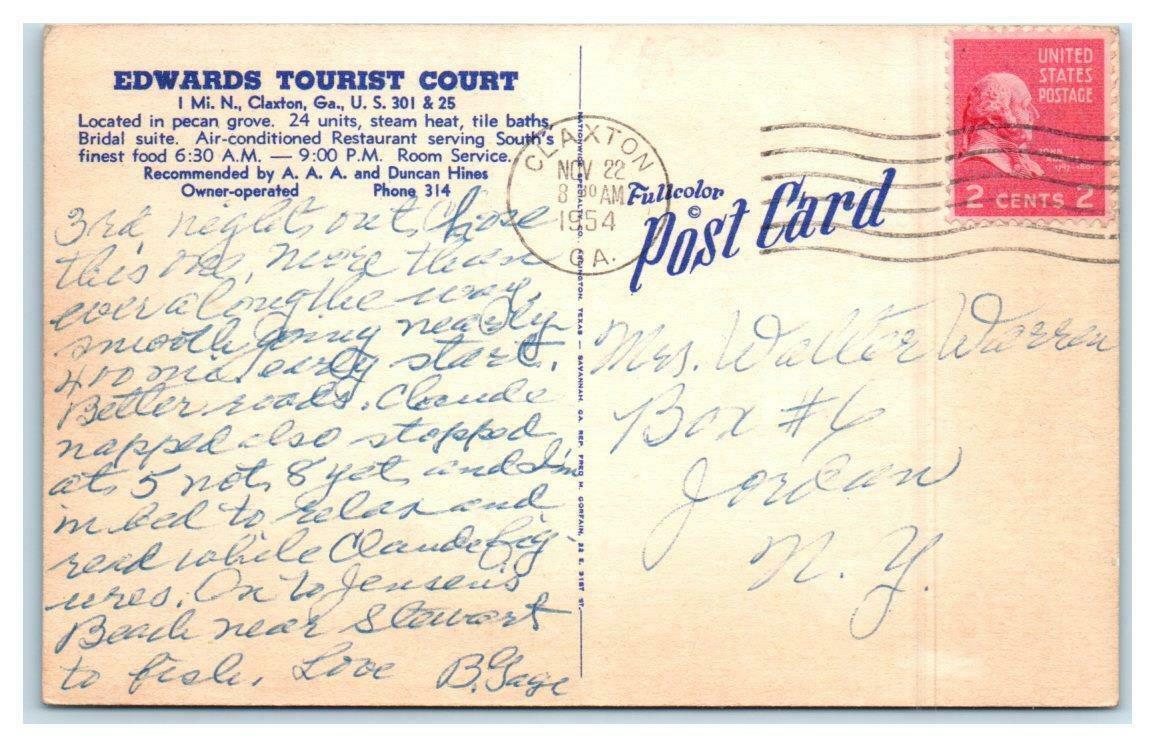 EDWARDS TOURIST COURT
1 Mi. N., Claxton, Ga., U. S. 301 & 25
Located in pecan grove. 24 units, steam heat, tile baths,
Bridal suite. Air-conditioned Restaurant serving South's
finest food 6:30 A.M. — 9:00 P.M. Room Service.
Recommended by A. A. A. and Duncan Hines
Owner-operated Phone 314
3rd night out, Chose
this one, more than
ever along the way,
smooth going nearly
400 mi. early start.
Better roads. Claude
napped also stopped
at 5 not 8 yet and I'm
in bed to relax and
read while Claude fig-
ures. On to Jensens
Beach near Stewart
to fish. Love B. Gage
NATIONWIDE SPECIALTY CO., ARLINGTON, TEXAS — SAVANNAH, GA. REP. FRED M. GORFAIN, 22 E. 31ST ST.
CLAXTON
NOV 22
8 30 AM
1954
GA.
Fullcolor
©
Post Card
UNITED
STATES
POSTAGE
JOHN
1797-1801
2 CENTS 2
Mrs. Walter Warren
Box #6
Jordan
N. Y.